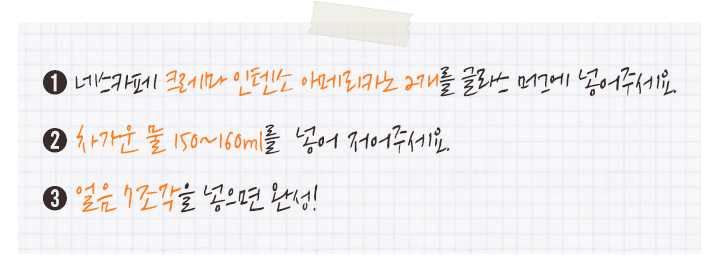 1 네스카페 크레마 인텐소 아메리카노 2개를 글라스 머그에 넣어주세요.
2 차가운 물 150~160ml를 넣어 저어주세요.
3 얼음 7조각을 넣으면 완성!